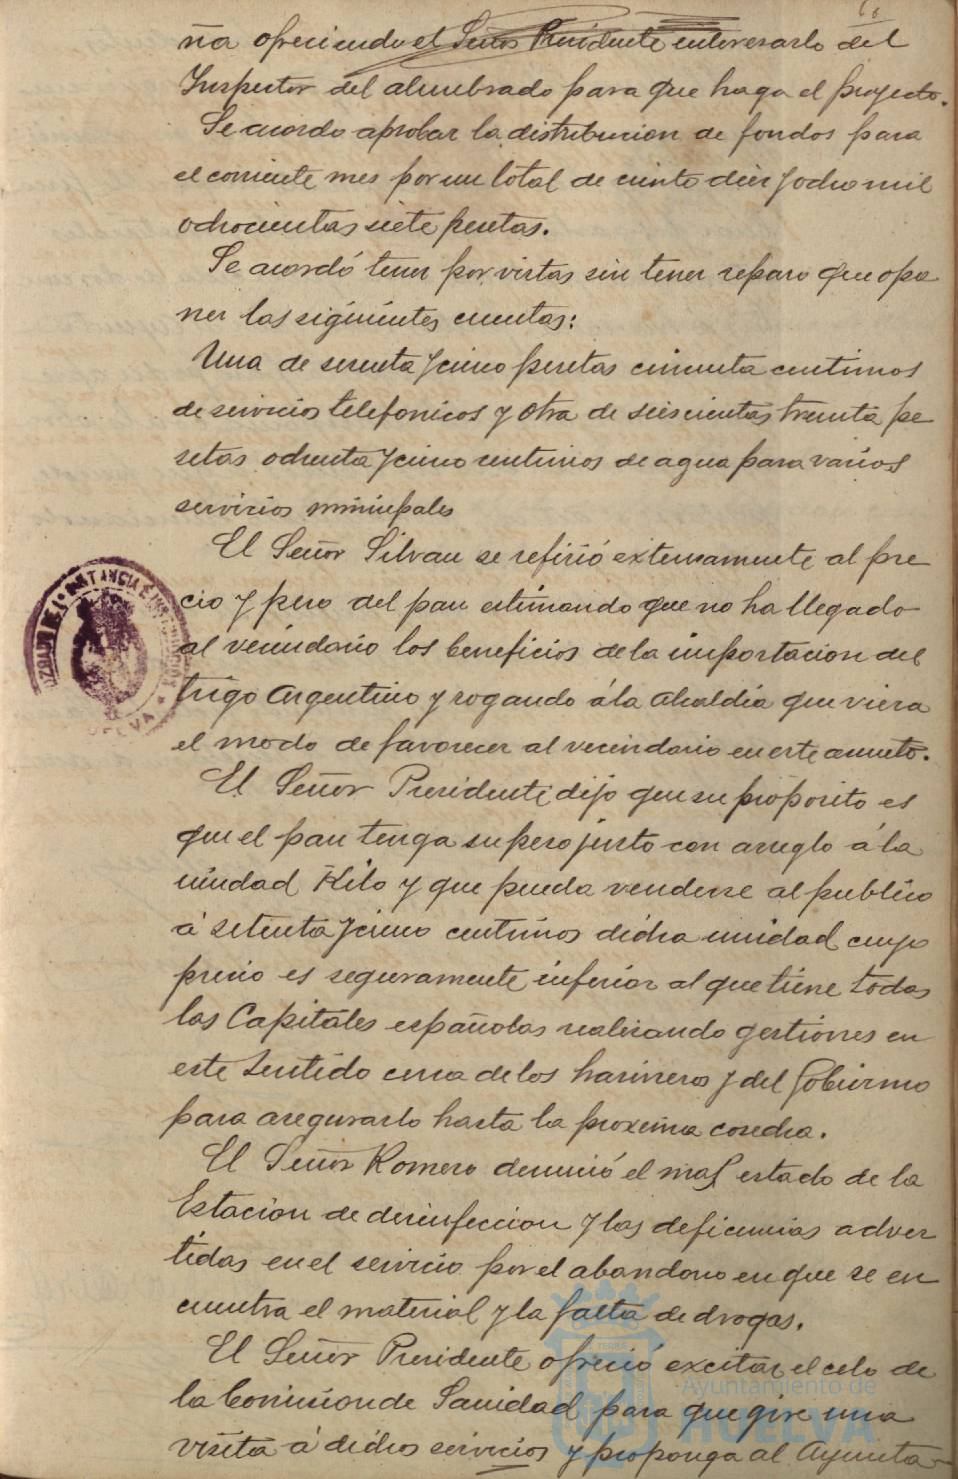 ña ofreciendo el Señor Presidente interesarlo del
Inspector del alumbrado para que haga el proyecto.
Se acordo aprobar la distribucion de fondos para
el corriente mes por un total de ciento diez y ocho mil
ochocientas siete pesetas.
Se acordó tener por vistas sin tener reparo que opo
ner las siguientes cuentas:
Una de sesenta y cinco pesetas cincuenta centimos
de servicios telefonicos y otra de seiscientas treinta pe
setas ochenta y cinco centimos de agua para varios
servicios municipales
El Señor Silvan se refirió extensamente al pre
cio y peso del pan estimando que no ha llegado
al vecindario los beneficios de la importacion del
trigo Argentino y rogando á la Alcaldia que viera
el modo de favorecer al vecindario en este asunto.
El Señor Presidente dijo que su proposito es
que el pan tenga su peso justo con arreglo á la
unidad Kilo y que pueda venderse al publico
á setenta y cinco centimos dicha unidad cuyo
precio es seguramente inferior al que tiene todas
las Capitales españolas realizando gestiones en
este sentido cerca de los harineros y del Gobierno
para asegurarlo hasta la proxima cosecha.
El Señor Romero denunció el mal estado de la
Estacion de desinfeccion y las deficiencias adver
tidas en el servicio por el abandono en que se en
cuentra el material y la falta de drogas.
El Señor Presidente ofreció excitar el celo de
la Comision de Sanidad para que gire una
visita á dichos servicios y proponga al Ayunta-
Ayuntamiento de
HUELVA